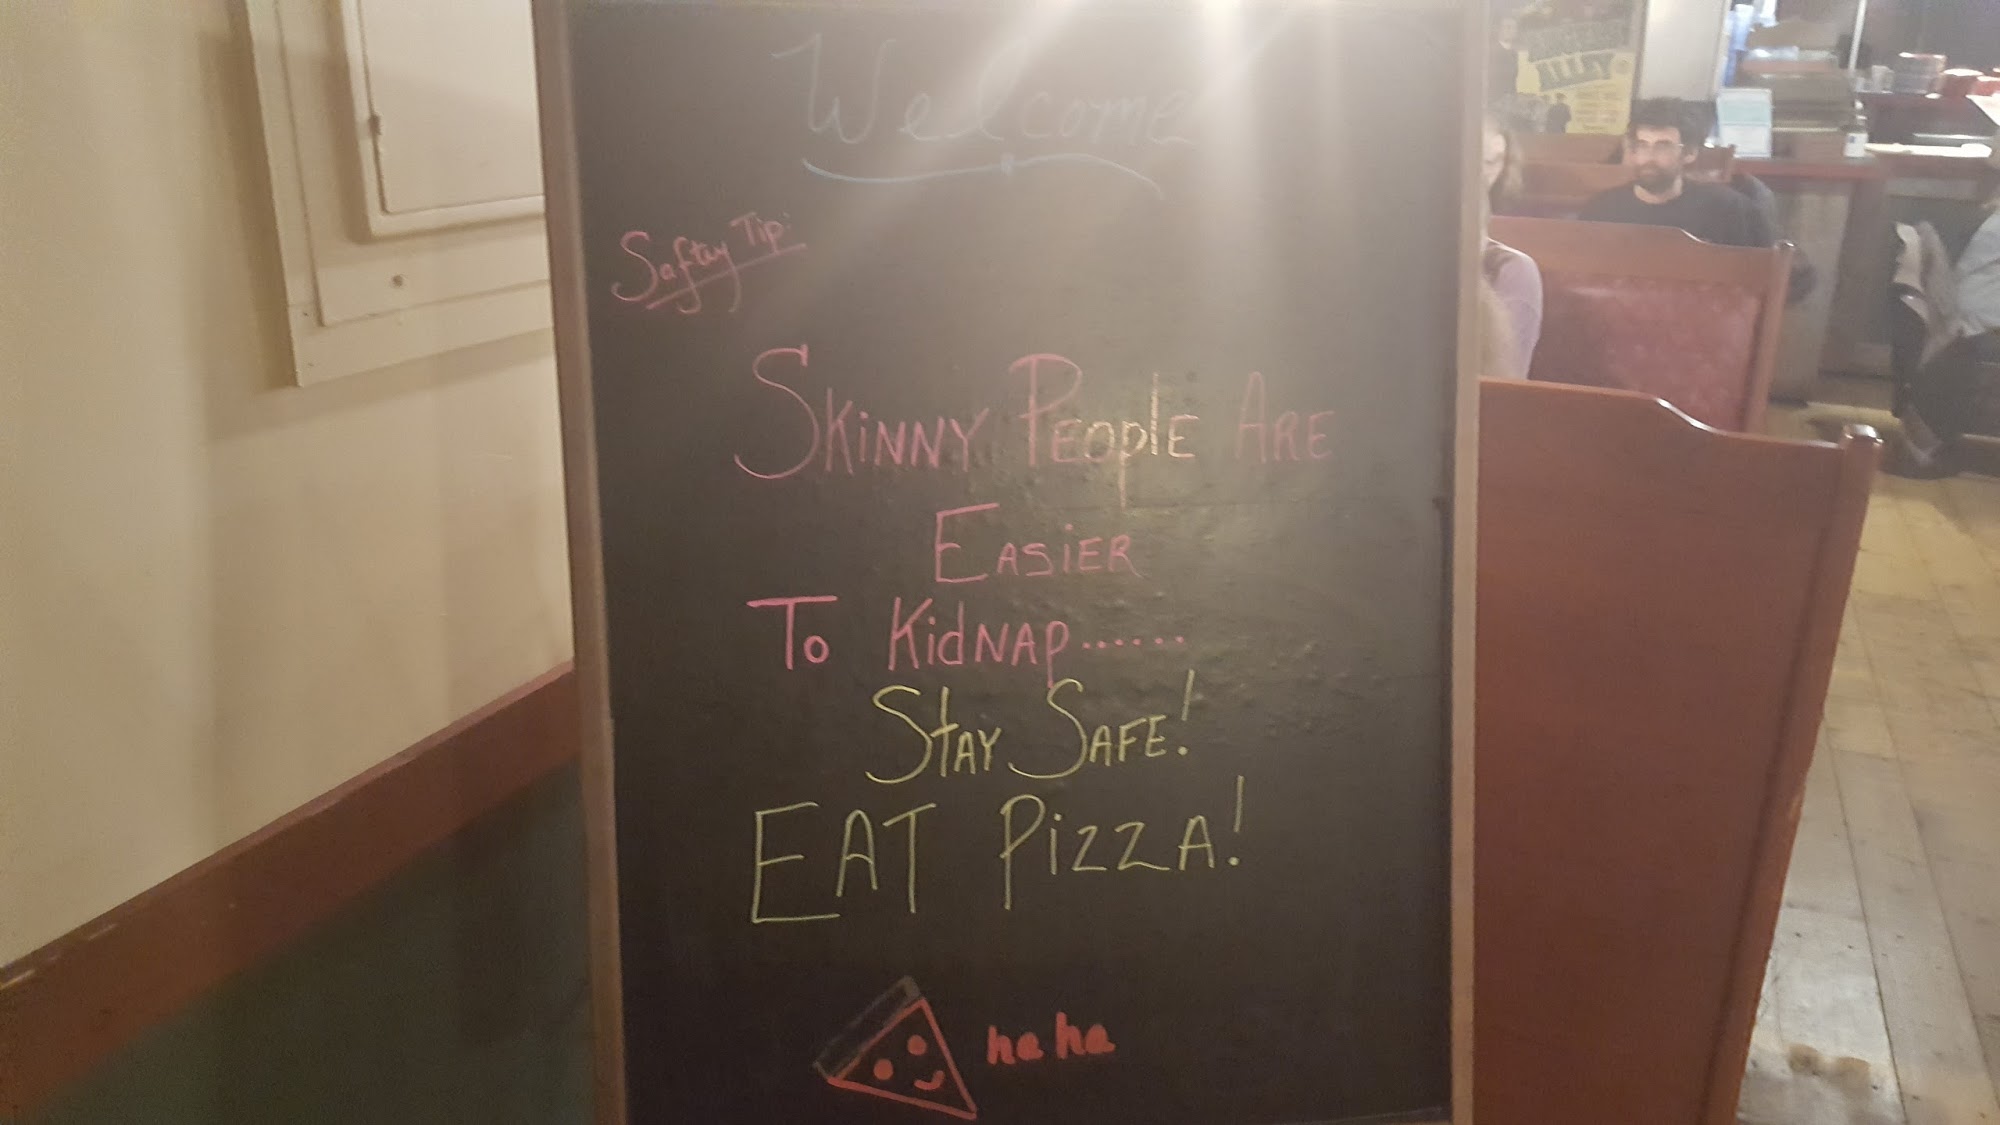 Welcome
Saftey Tip:
SKiNNY PEOPlE ARE
EASiER
To KidNAP......
StAY SAFE!
EAT PiZZA!
haha
ALLEY